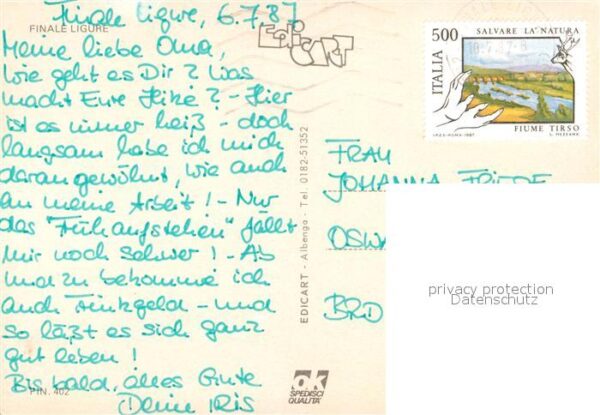 Finale Ligure, 6.7.87
FINALE LIGURE
Meine liebe Oma,
wie geht es Dir? Was
macht Eure Hitze? - Hier
ist es immer heiß - doch
langsam habe ich mich
daran gewöhnt, wie auch
an meine Arbeit! - Nur
das "Frühaufstehen" fällt
mir noch schwer! - Ab
und zu bekomme ich
auch Trinkgeld - und
so läßt es sich ganz
gut leben!
Bis bald, alles Gute
Deine IRIS
P/N. 402
EDICART
EDICART - Albenga - Tel. 0182-51352
OK
SPEDISCI
QUALITÀ
ITALIA
500
SALVARE LA NATURA
FIUME TIRSO
I.P.Z.S.-ROMA-1987
FRAU
JOHANNA FRIEDE
OSWA
BRD
privacy protection
Datenschutz